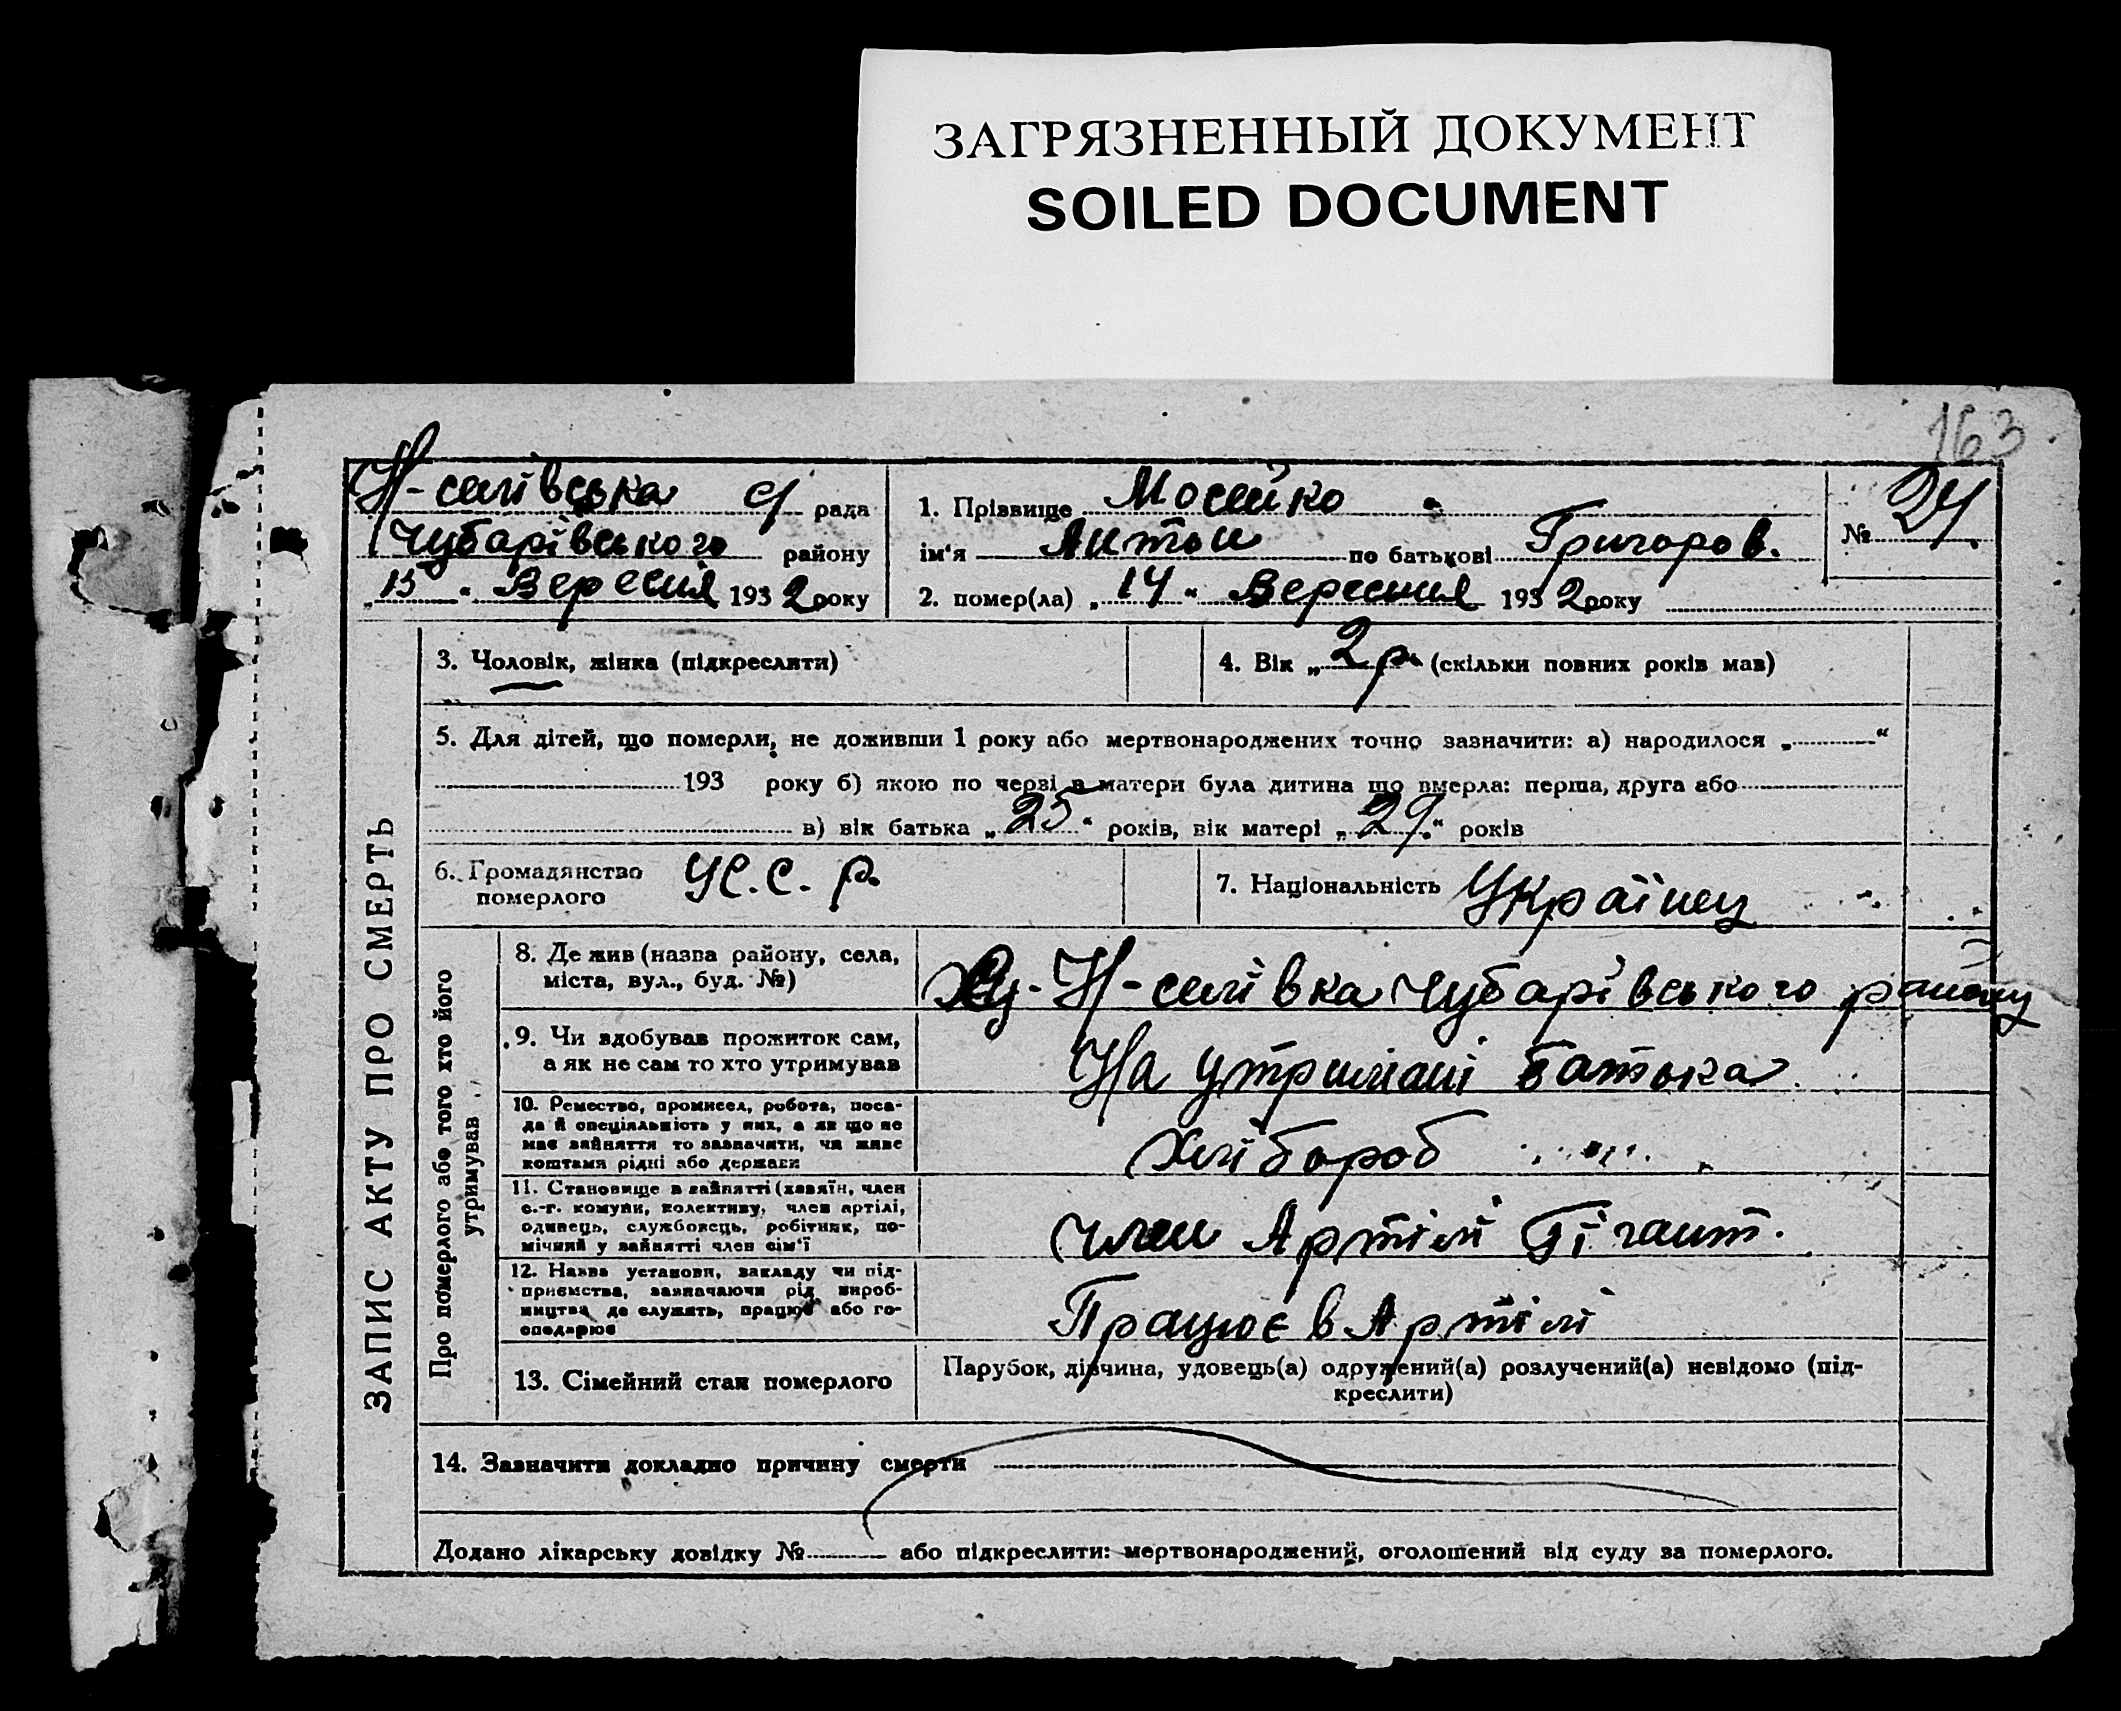 ЗАГРЯЗНЕННЫЙ ДОКУМЕНТ
SOILED DOCUMENT
163
Н-селівська с/ рада
Чубарівського району
„15“ Вересня 1932 року
1. Прізвище Мосейко
ім'я Антон по батькові Григоров.
2. помер(ла) „14“ Вересния 1932 року
№ 24.
ЗАПИС АКТУ ПРО СМЕРТЬ
3. Чоловік, жінка (підкреслити)
4. Вік „2р“ (скільки повних років мав)
5. Для дітей, що померли, не доживши 1 року або мертвонароджених точно зазначити: а) народилося „ “
193 року б) якою по черзі в матери була дитина що вмерла: перша, друга або
в) вік батька „25“ років, вік матері „29.“ років
6. Громадянство
померлого
У.С.С.Р.
7. Національність Українец
Про померлого або того хто його
утримував
8. Де жив (назва району, села,
міста, вул., буд. №)
Н-селівка Чубарівського району
9. Чи здобував прожиток сам,
а як не сам то хто утримував
На утримані батька
10. Ремество, промисел, робота, поса-
да й спеціяльність у них, а як що не
має зайняття то зазначити, чи живе
коштами рідні або держави
Хлібороб
11. Становище в зайнятті (хазяїн, член
с.-г. комуни, колективу, член артілі,
одинець, службовець, робітник, по-
мічний у зайнятті член сім'ї
член Артілі Гігант.
12. Назва установи, закладу чи під-
приємства, зазначаючи рід вироб-
ництва де служить, працює або го-
сподарює
Працює в Артілі
13. Сімейний стан померлого
Парубок, дівчина, удовець(а) одружений(а) розлучений(а) невідомо (під-
креслити)
14. Зазначити докладно причину смерти
Додано лікарську довідку № або підкреслити: мертвонароджений, оголошений від суду за померлого.